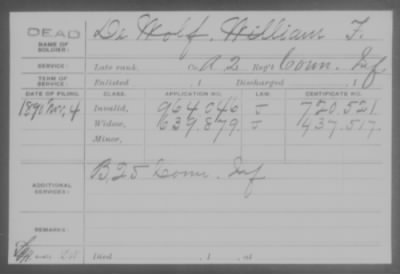 DEAD
NAME OF SOLDIER:
De Wolf, William F.
SERVICE:
Late rank, Co. A 2 Reg't Conn. Inf.
TERM OF SERVICE:
Enlisted , 1 Discharged , 1
DATE OF FILING. CLASS. APPLICATION NO. LAW. CERTIFICATE NO.
1890 Nov, 4 Invalid, 964.046 J 720.521.
Widow, 639.879. J 437.517.
Minor,
ADDITIONAL SERVICES:
B, 25 Conn. Inf
REMARKS:
Died , 1 , at